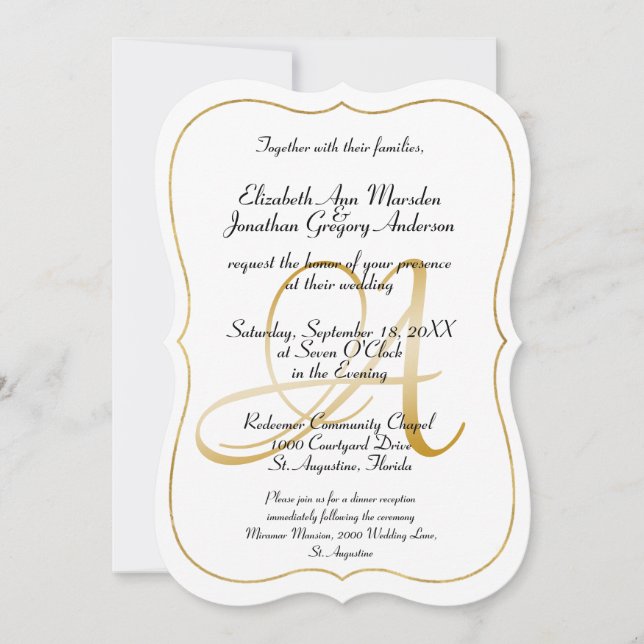 Together with their families,
Elizabeth Ann Marsden
&
Jonathan Gregory Anderson
request the honor of your presence
at their wedding
A
Saturday, September 18, 20XX
at Seven O'Clock
in the Evening
Redeemer Community Chapel
1000 Courtyard Drive
St. Augustine, Florida
Please join us for a dinner reception
immediately following the ceremony
Miramar Mansion, 2000 Wedding Lane,
St. Augustine